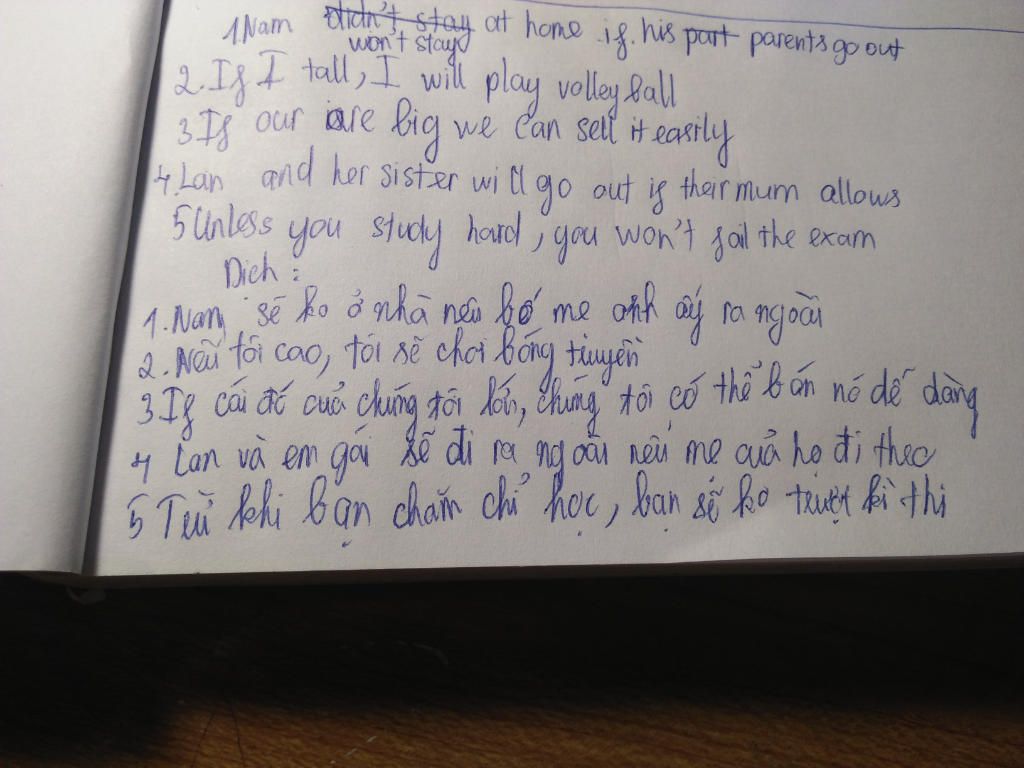 1. Nam didn't stay at home if his part parents go out
won't stay
2. If I tall, I will play volleyball
3 If our are big we can sell it easily
4. Lan and her sister will go out if their mum allows
5 Unless you study hard, you won't fail the exam
Dich :
1. Nam sẽ ko ở nhà nếu bố mẹ anh ấy ra ngoài
2. Nếu tôi cao, tôi sẽ chơi bóng truyền
3 If cái đó của chúng tôi lớn, chúng tôi có thể bán nó dế dàng
4 Lan và em gái sẽ đi ra ngoài nếu mẹ của họ đi theo
5 Trừ khi bạn chăm chỉ học, bạn sẽ ko trượt kì thi